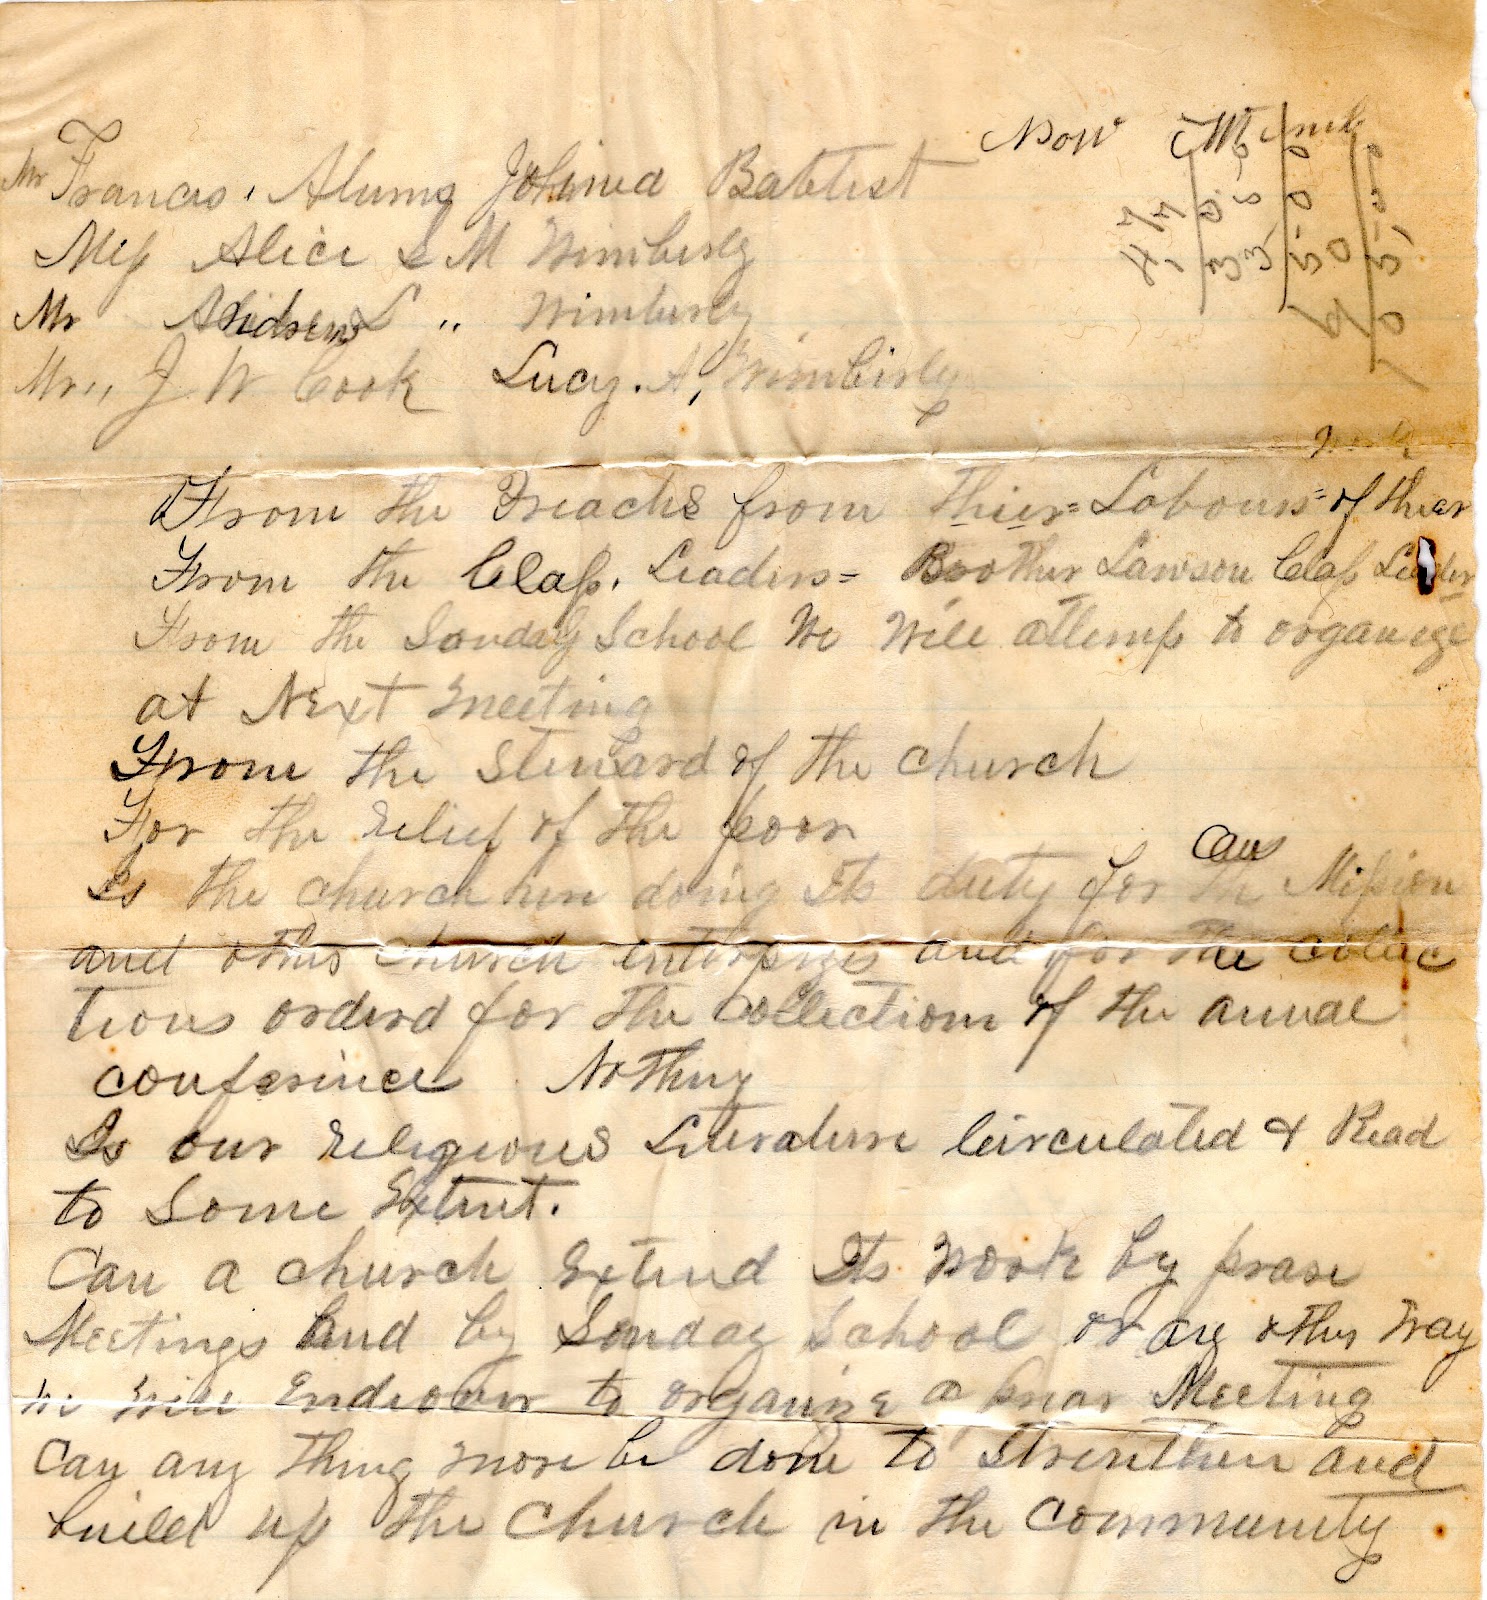 Now
Mr Francis, Alums Johined Babtist
Miss Alice L M Wimberly
Mr L " Wimberly
Mrs,, J W Cook Lucy. A, Wimberly
work
From the Preachs from thier = Labours = of thier
From the Class. Leaders = Broother Lawson Class Leader
From the Sonday School We Will attemp to organize
at Next meeting
From the Steward of the church
For the relief of the poor
Caus
Is the church here doing Its duty for the Mission
and other church enterpizes and for the colec
tions orderd for the Collections of the annual
conference Nothing
Is our religious Literature Circulated & Read
to Some Extent.
Can a church Extend Its work by prare
Meetings and by Sonday School or any other Way
we will Endeavour to organize a prar Meeting
Can any thing more be done to Strenthen and
build up the Church in the community